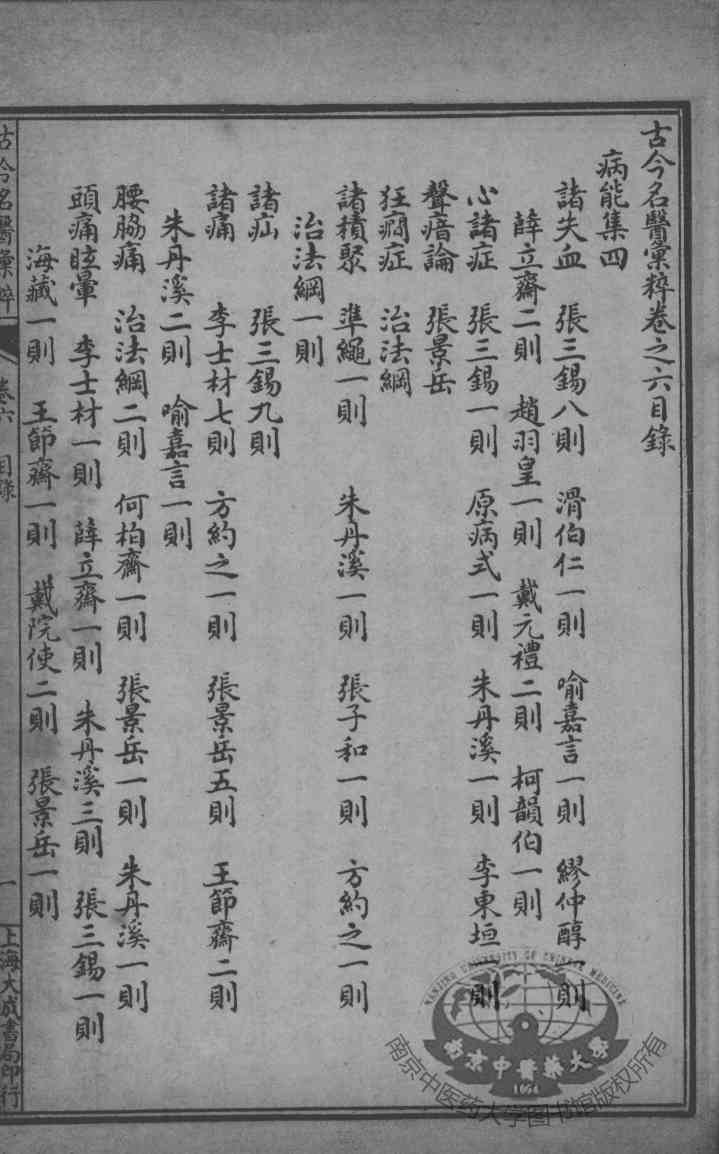 古今名醫彙粹卷之六目錄
病能集四
諸失血　張三錫八則　滑伯仁一則　喻嘉言一則　繆仲醇一則
薛立齋二則　趙羽皇一則　戴元禮二則　柯韻伯一則
心諸症　張三錫一則　原病式一則　朱丹溪一則　李東垣一則
聲瘖論　張景岳
狂癎症　治法綱
諸積聚　準繩一則　朱丹溪一則　張子和一則　方約之一則
治法綱一則
諸疝　張三錫九則
諸痛　李士材七則　方約之一則　張景岳五則　王節齋二則
朱丹溪二則　喻嘉言一則
腰脇痛　治法綱二則　何柏齋一則　張景岳一則　朱丹溪一則
頭痛眩暈　李士材一則　薛立齋一則　朱丹溪三則　張三錫一則
海藏一則　王節齋一則　戴院使二則　張景岳一則
古今名醫彙粹　卷六　目錄　一　上海大成書局印行
NANJING UNIVERSITY OF CHINESE MEDICINE
南京中醫藥大學
南京中医药大学图书馆版权所有